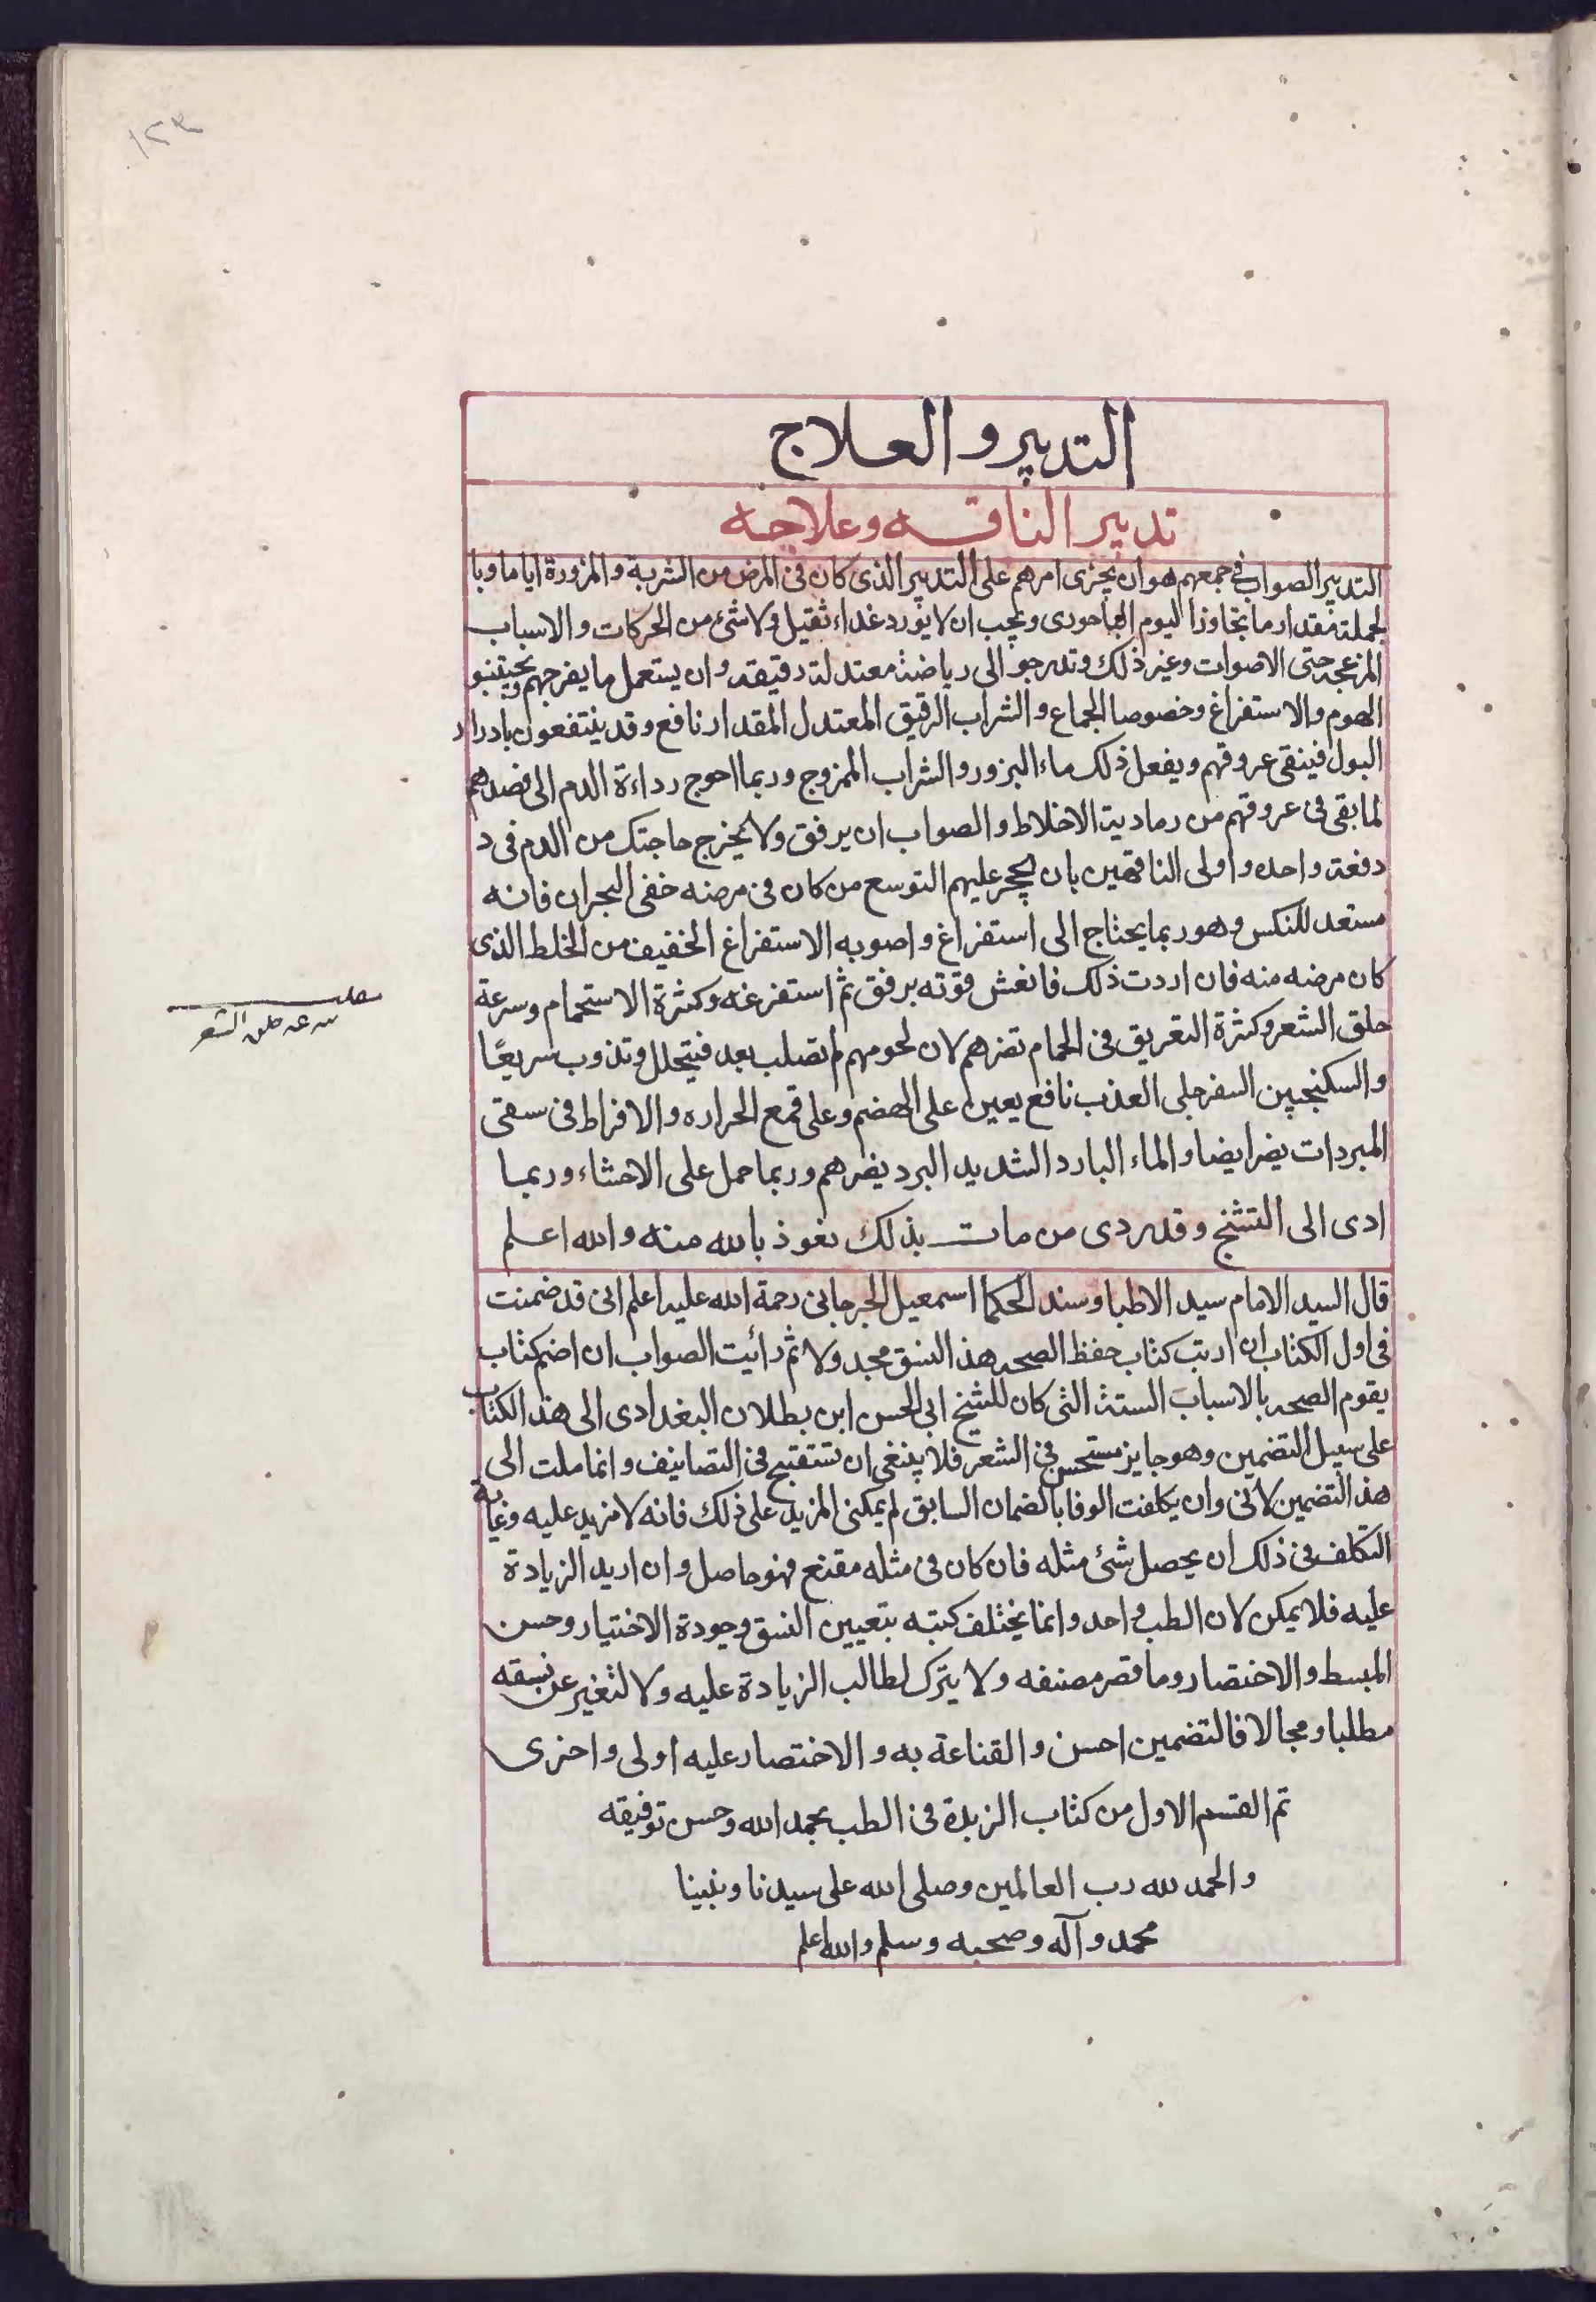 ١٢٣
التدبير والعلاج
تدبير الناقه وعلاجه
التدبير الصواب في جمعهم هو ان يجزى امرهم على التدبير الذى كان فى المرض من الشربة والمزورة اياما وبا
لجملة مقدار ما يتجاوز اليوم الباحورى ويجب ان لا يورد غداء ثقيل ولا شئ من الحركات والاسباب
المزعجه حتى الاصوات وغير ذلك وتدرجو الى رياضة معتدلة دقيقه وان يستعمل ما يفرجهم ويجتنبو
الهموم والاستفراغ وخصوصا الجماع والشراب الرقيق المعتدل المقدار نافع وقد ينتفعون بادرار
البول فينقى عروقهم ويفعل ذلك ماء البزور والشراب الممزوج وربما احوج رداءة الدم الى فصدهم
لما بقى فى عروقهم من رمادية الاخلاط والصواب ان يرفق ولا يخرج حاجتك من الدم فى د
دفعة واحده واولى الناقهين بان يحجر عليهم التوسع من كان فى مرضه خفى البحران فانه
مستعد للنكس وهو ربما يحتاج الى استفراغ واصوبه الاستفراغ الخفيف من الخلط الذى
كان مرضه منه فان اردت ذلك فانعش قوته برفق ثم استفرغه وكثرة الاستحمام وسرعة
حلق الشعر وكثرة التعريق فى الحمام تضرهم لان لحومهم لم تصلب بعد فيتحلل وتذوب سريعًا
والسكنجبين السفرجلى العذب نافع يعين على الهضم وعلى قمع الحراره والافراط فى سقى
المبردات يضر ايضا والماء البارد الشديد البرد يضرهم وربما حمل على الاحشاء وربما
ادى الى التشنج وقد ردى من مات بذلك نعوذ بالله منه والله اعلم
سرعه حلق الشعر
قال السيد الامام سيد الاطبا وسند الحكما اسمعيل الجرجانى رحمة الله عليه اعلم انى قد ضمنت
فى اول الكتاب ان ارتب كتاب حفظ الصحه هذ النسق مجدولا ثم رائيت الصواب ان اضم كتاب
يقوم الصحه بالاسباب الستة التى كان للشيخ ابى الحسن ابن بطلان البغدادى الى هذ الكتاب
على سبيل التضمين وهو جايز مستحسن فى الشعر فلا ينبغى ان تستقبح فى التصانيف وانما ملت الى
هذ التضمين لانى وان يكلفت الوفا بالضمان السابق لم يمكنى المزيد على ذلك فانه لا مزيد عليه وغاية
التكلف فى ذلك ان يحصل شئ مثله فان كان فى مثله مقنع فهو حاصل وان اريد الزيادة
عليه فلا يمكن لان الطب واحد وانما يختلف كتبه بتعيين النسق وجودة الاختيار وحسن
المبسط والاختصار وما قصر مصنفه ولا يترك لطالب الزيادة عليه ولا لتغير عن نسقه
مطلبا ومجالا فالتضمين احسن والقناعة به والاختصار عليه اولى واحرى
تم القسم الاول من كتاب الزبدة فى الطب بحمد الله وحسن توفيقه
والحمد لله رب العالمين وصلى الله على سيدنا ونبينا
محمد وآله وصحبه وسلم والله اعلم